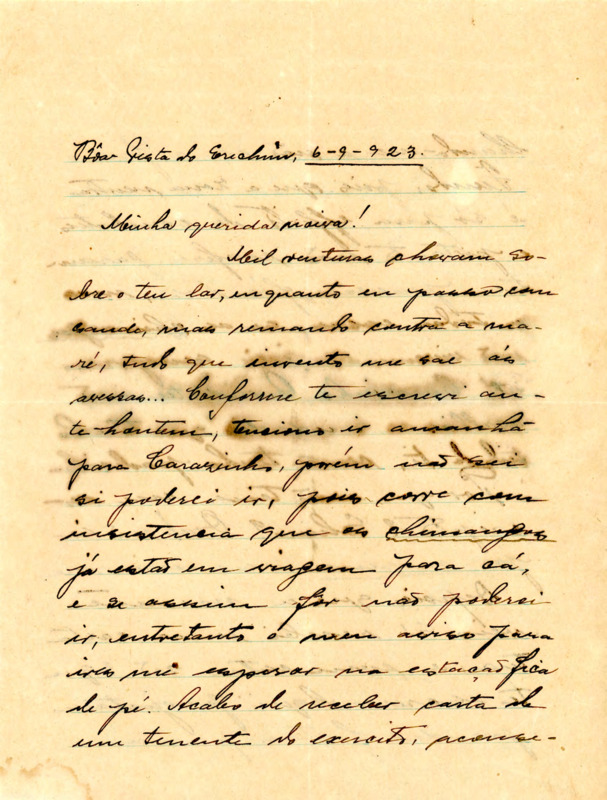 Bôa Vista do Erechim, 6-9-923.
Minha querida noiva!
Mil venturas chovam so-
bre o teu lar, enquanto eu passo com
saude, mas remando contra a ma-
ré, tudo que invento me sae ás
avessas... Conforme te escrevi an-
te-hontem, tenciono ir amanhã
para Carazinho, porém não sei
si poderei ir, pois corre com
insistencia que os chimangos
já estão em viagem para cá,
e se assim fôr não poderei
ir, entretanto o meu aviso para
ires me esperar na estação fica
de pé. Acabo de receber carta de
um tenente do exercito, aconse-